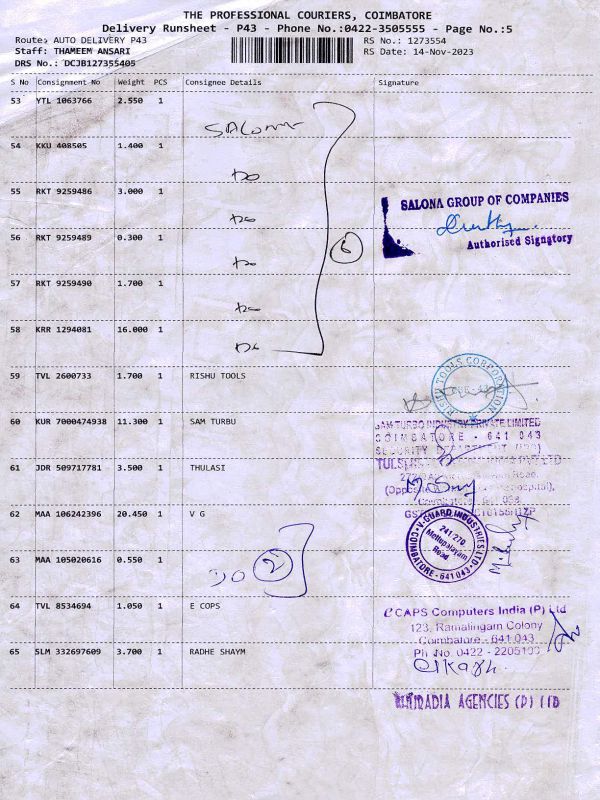 THE PROFESSIONAL COURIERS, COIMBATORE
Delivery Runsheet - P43 - Phone No.:0422-3505555 - Page No.:5
Route: AUTO DELIVERY P43 RS No.: 1273554
Staff: THAMEEM ANSARI RS Date: 14-Nov-2023
DRS No.: DCJB127355405
S No Consignment No Weight PCS Consignee Details Signature
53 YTL 1063766 2.550 1
SALONA
54 KKU 408505 1.400 1
Do
55 RKT 9259486 3.000 1
Do
SALONA GROUP OF COMPANIES
Authorised Signatory
56 RKT 9259489 0.300 1
Do
6
57 RKT 9259490 1.700 1
Do
58 KRR 1294081 16.000 1
Do
59 TVL 2600733 1.700 1 RISHU TOOLS
RISHU TOOLS CORPORATION
60 KUR 7000474938 11.300 1 SAM TURBU
SAM TURBO INDUSTRY PRIVATE LIMITED
COIMBATORE - 641 043
SECURITY DEPARTMENT
61 JDR 509717781 3.500 1 THULASI
PVT LTD
Road,
62 MAA 106242396 20.450 1 V G
V-GUARD INDUSTRIES LTD
241, 270
Mettupalayam
Road
COIMBATORE - 641 043
63 MAA 105020616 0.550 1
Do 2
64 TVL 8534694 1.050 1 E COPS
eCAPS Computers India (P) Ltd
123, Ramalingam Colony
Coimbatore - 641 043
Ph No. 0422 -
65 SLM 332697609 3.700 1 RADHE SHAYM
AGENCIES (P) LTD